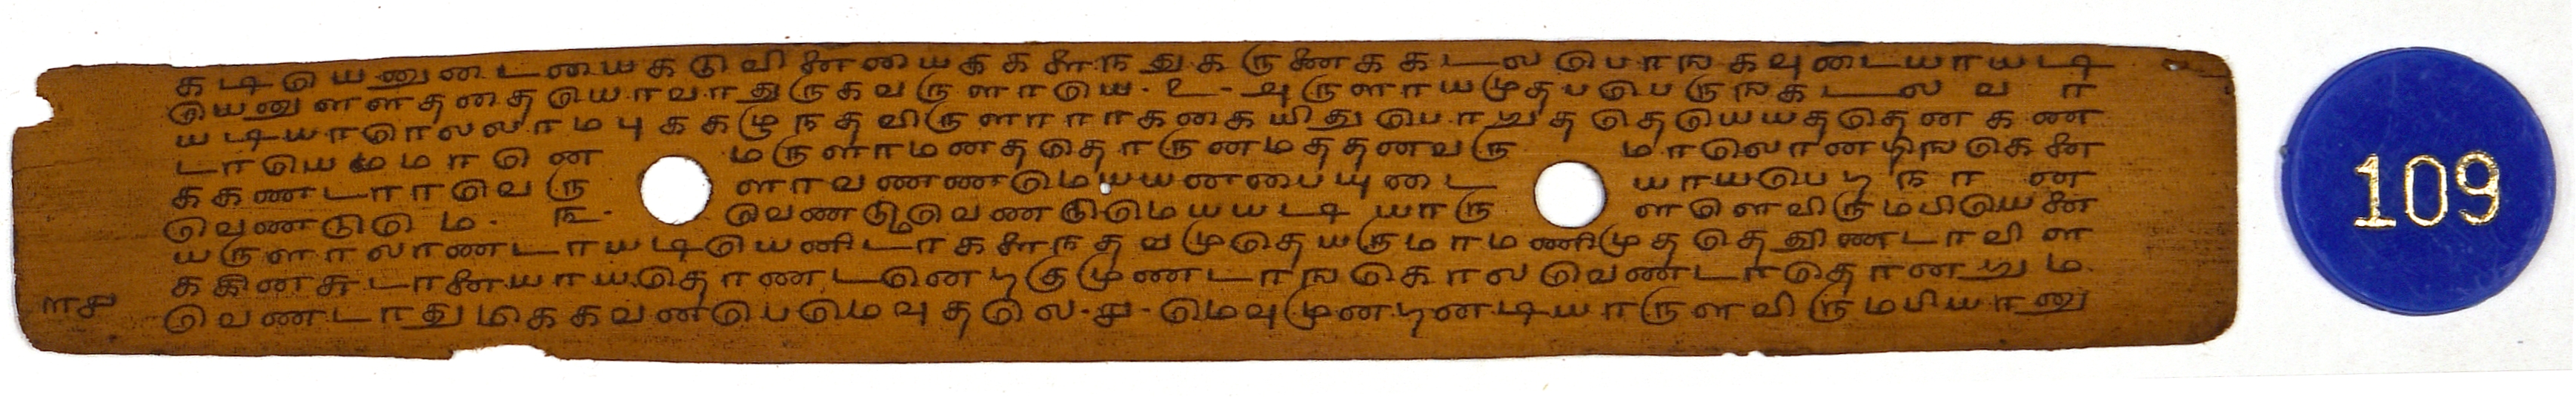 கடியெனுடையைகடுவினையைககளநதுகருணைககடலபொஙகவுடையாயடி
யெனுளளததையொவாதுருகவருளாயெ. உ. அருளாயமுதபபெருஙகடலவா
யடியாரெலலாமபுககழுநதவிருளாராககையிதுபொறுததெயெயததெனகண
டாயெமமானெ மருளாமனததொருனமததனவரு மாலொனறிஙகெனை
ககணடாரவெரு ளாவணணமெயயனபையுடை யாயபெறநான
வெணடுமெ. ங. வெணடுமவெணடுமெயயடியாரு ளளெவிருமபியெனை
யருளாலாணடாயடியெனிடாகளநதவமுதெயருமாமணிமுததெதூணடாவிள
ககினசுடரனையாயதொணடனெறகுமுணடாஙகொலவெணடாதொனறும
வெணடாதுமிககவனபெமெவுதலெ. ச. மெவுமுனறனடியாருளவிருமபியானு
ளச
109